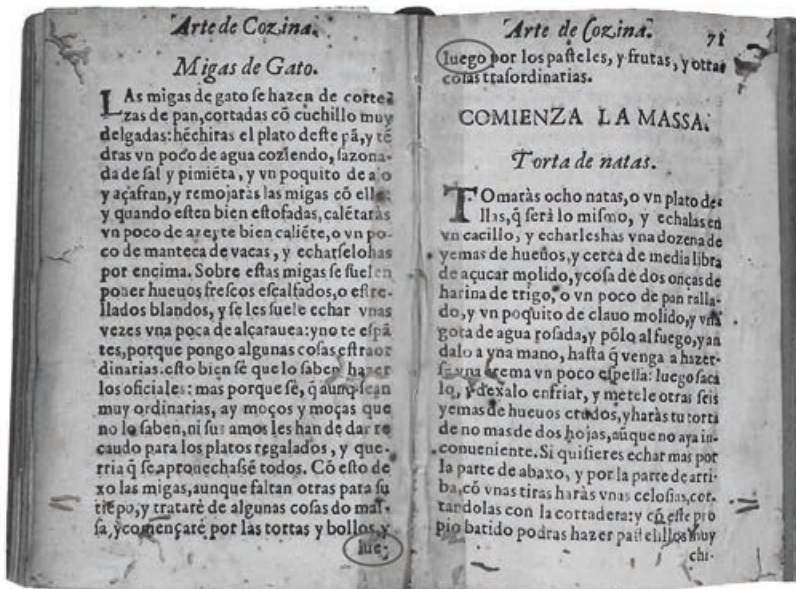 Arte de Cozina.
Migas de Gato.
LAs migas de gato ſe hazen de corte-
zas de pan, cortadas cõ cuchillo muy
delgadas: hẽchiras el plato deſte pã, y tẽ
dras vn poco de agua coziendo, ſazona-
da de ſal y pimiẽta, y vn poquito de ajo
y açafran, y remojarás las migas cõ ello:
y quando eſten bien eſtofadas, calẽtaràs
vn poco de azeyte bien caliẽte, o vn po-
co de manteca de vacas, y echarſelohas
por encima. Sobre eſtas migas ſe ſuelen
poner hueuos freſcos eſcalfados, o eſtre-
llados blandos, y ſe les ſuele echar vnas
vezes vna poca de alçarauea: y no te eſpã
tes, porque pongo algunas coſas eſtraor
dinarias. eſto bien sè que lo ſaben hazer
los oficiales: mas porque sè, q̃ aunq̃ ſean
muy ordinarias, ay moços y moças que
no lo ſaben, ni ſus amos les han de dar re
caudo para los platos regalados, y que-
rria q̃ ſe aprouechaſſẽ todos. Cõ eſto de
xo las migas, aunque faltan otras para ſu
tiẽpo, y trataré de algunas coſas do maſ-
ſa, y començaré por las tortas y bollos, y
lue-
Arte de Cozina. 71
luego por los paſteles, y frutas, y otras
coſas traſordinarias.
COMIENZA LA MASSA.
Torta de natas.
TOmaràs ocho natas, o vn plato de-
llas, q̃ ſerà lo miſmo, y echalas en
vn cacillo, y echarleshas vna dozena de
yemas de hueuos, y cerca de media libra
de açucar molido, y coſa de dos onças de
harina de trigo, o vn poco de pan ralla-
do, y vn poquito de clauo molido, y vna
gota de agua roſada, y põlo al fuego, y an
dalo a vna mano, haſta q̃ venga a hazer-
ſe vna crema vn poco eſpeſſa: luego ſaca
lo, y dexalo enfriar, y metele otras ſeis
yemas de hueuos crudos, y haràs tu torta
de no mas de dos hojas, aũque no aya in-
conueniente. Si quiſieres echar mas por
la parte de abaxo, y por la parte de arri-
ba, cõ vnas tiras haràs vnas celoſias, cor-
tandolas con la cortadera: y cõ eſte pro
pio batido podras hazer paſtelillos muy
chi-